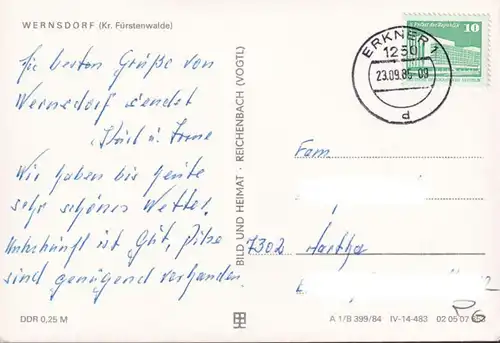 WERNSDORF (Kr. Fürstenwalde)
Die besten Grüße von
Wernsdorf sendet
u.
Wir haben bis heute
sehr schönes Wetter.
Unterkunft ist Gut, Pilze
sind genügend vorhanden.
DDR 0,25 M
BILD UND HEIMAT · REICHENBACH (VOGTL)
ERKNER 1
1250
23.09.86-09
d
10
Fam
7302 Hartha
A 1/B 399/84 IV-14-483 02 05 07
P6